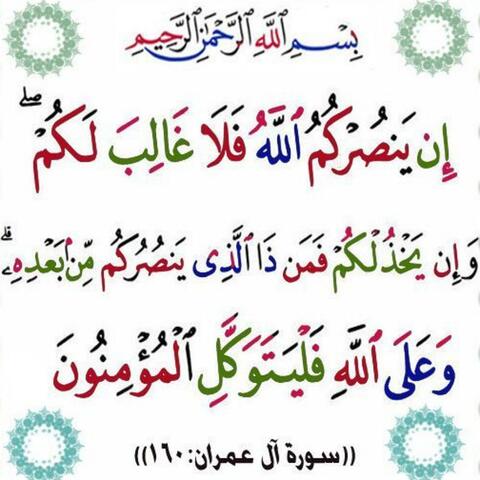 بِسْمِ ٱللَّهِ ٱلرَّحْمَٰنِ ٱلرَّحِيمِ
إِن يَنصُرْكُمُ ٱللَّهُ فَلَا غَالِبَ لَكُمْ ۖ
وَإِن يَخْذُلْكُمْ فَمَن ذَا ٱلَّذِى يَنصُرُكُم مِّنۢ بَعْدِهِۦ ۗ
وَعَلَى ٱللَّهِ فَلْيَتَوَكَّلِ ٱلْمُؤْمِنُونَ
((سورة آل عمران:١٦٠))